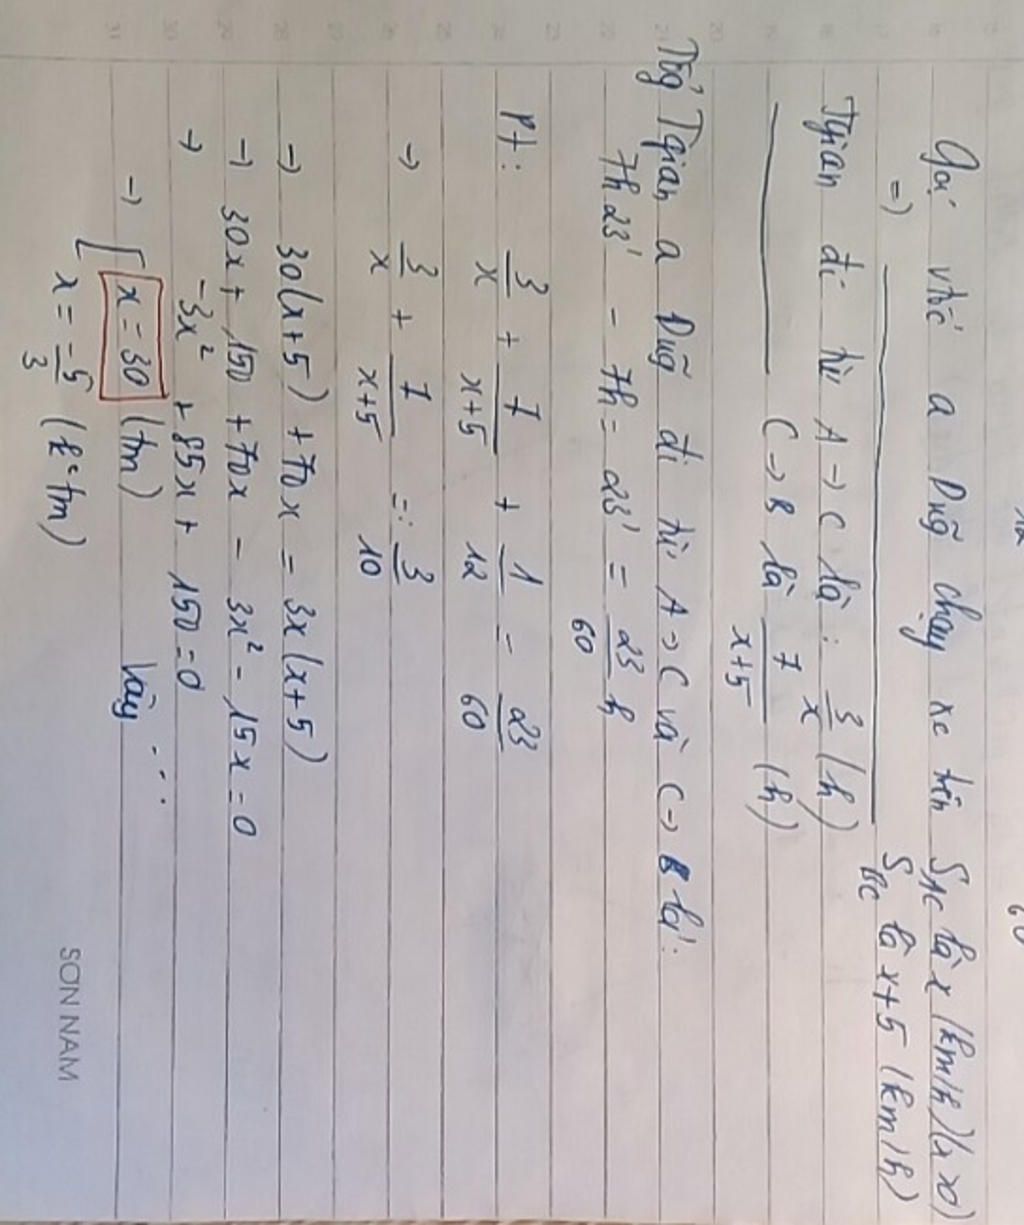 Gọi vtốc a Dũg chạy xe trên S_AC là x (km/h)(x>0)
=) ——— S_BC là x+5 (km/h)
Tgian đi từ A → C là : 3/x (h)
——— C → B là 7/(x+5) (h)
Tổg Tgian a Dũg đi từ A → C và C → B là :
7h23' - 7h = 23' = 23/60 h
Pt : 3/x + 7/(x+5) + 1/12 = 23/60
→ 3/x + 7/(x+5) = 3/10
→ 30(x+5) + 70x = 3x(x+5)
→ 30x + 150 + 70x - 3x² - 15x = 0
→ -3x² + 85x + 150 = 0
→ [ x = 30 (tm) Vậy ...
x = -5/3 (k°tm)
SON NAM